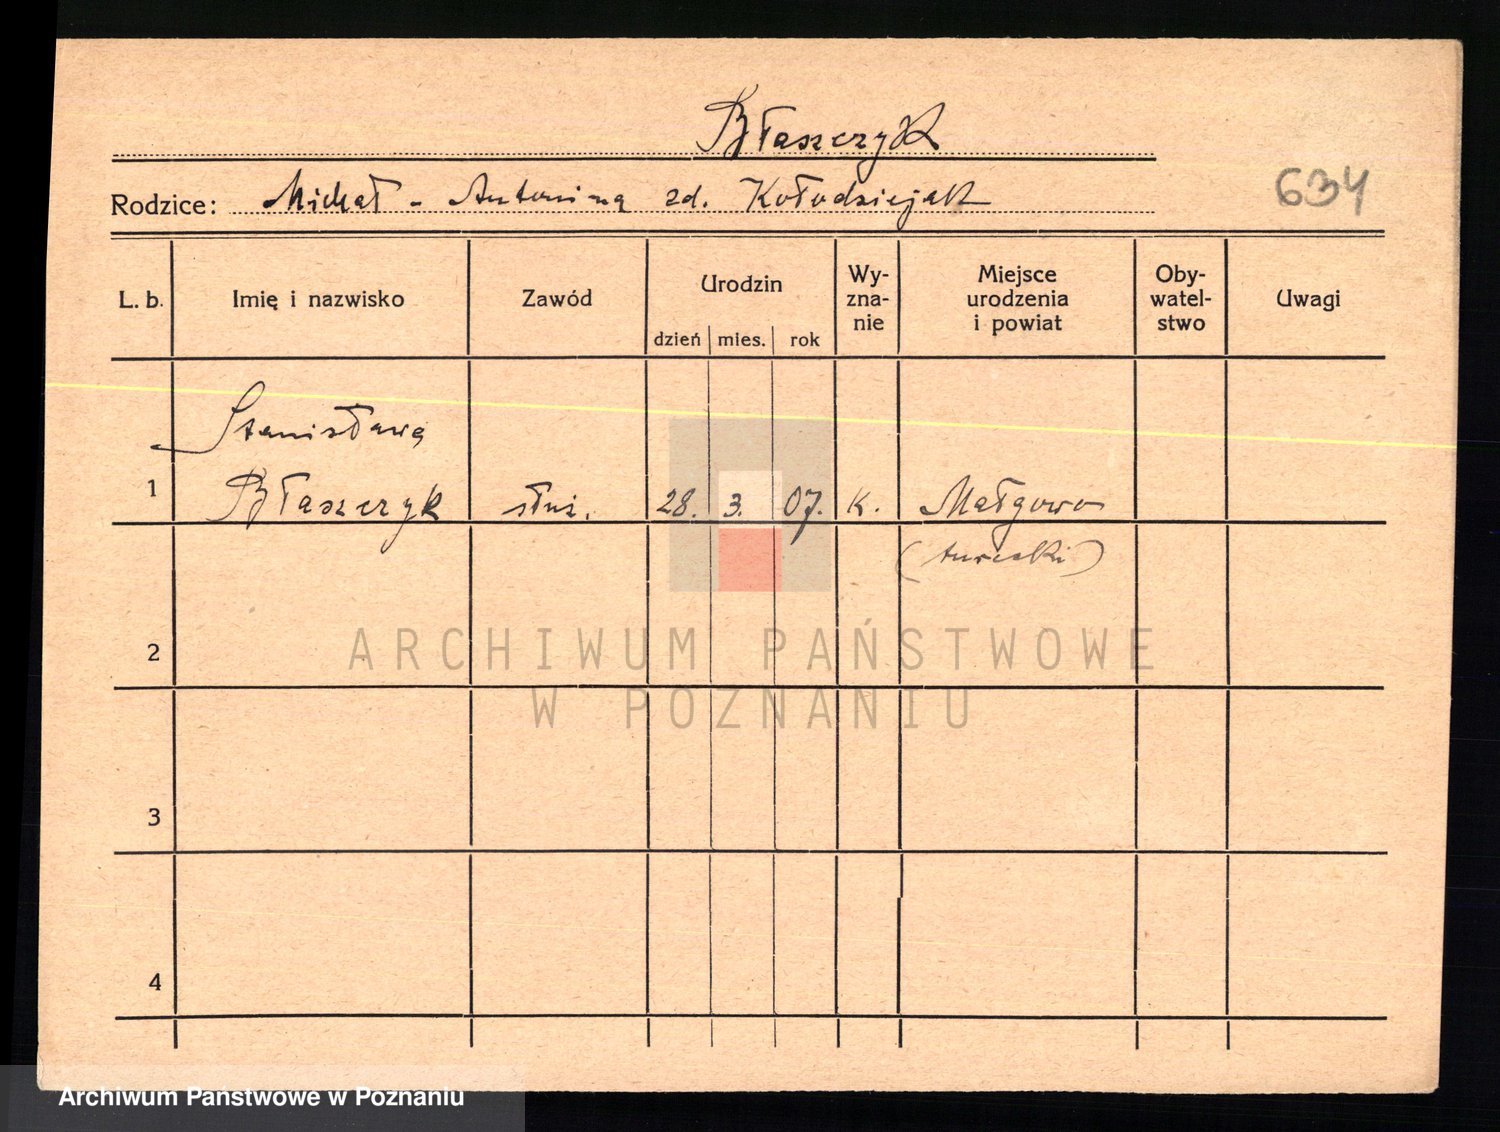 Błaszczyk
Rodzice: Michał - Antonina zd. Kołodziejak
634
L. b. Imię i nazwisko Zawód Urodzin dzień mies. rok Wy-zna-nie Miejsce urodzenia i powiat Oby-watel-stwo Uwagi
Stanisława
1 Błaszczyk służ. 28. 3. 07. k. Małgowo
(turecki)
2
ARCHIWUM PAŃSTWOWE
W POZNANIU
3
4
Archiwum Państwowe w Poznaniu